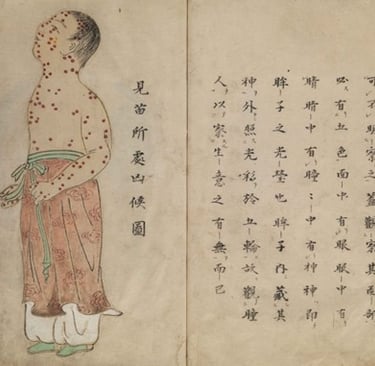 可不明察之蓋觀察其面部
必有五色面中有眼眼中有
睛睛中有瞳〻中有神神即
眸子之光瑩也眸子內藏其
神外照光彩於五輪故觀瞳
人以察生意之有無而已
見苗所處凶候圖